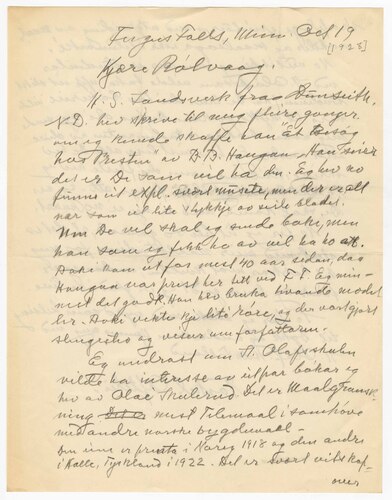 Fergus Falls, Minn. Oct 19
[1928]
Kjære Rölvaag.
K. S. Landsverk fraa Dunseith,
N.D. hev skrive til meg fleire gonger
om eg kunde skaffe han "Et Besøg
hos Presten" av B. B. Haugan. Han
det er De som vil ha den. Eg hev no
funne eit expl. svært, men der er alt
nær som eit lite stykkje av seide bladet.
Um De vil skal eg sende boki, men
han som eg fekk ho av vil ha ho att.
Boki kom ut for mest 40 aar sidan, daa
Haugan var prest her tett ved F. F. Eg min-
nest det godt. Han hev bruka livande model
ler. Boki vekte ikje lite røre, og der vart gjort
og vitser um forfattarin.
Eg undrast um St. Olafsskulen
vilde ha interesse av eit par bøkar eg
hev av Olav Skulerud. Det er Maalgransk-
ning mest Telemaal i samhøve
med andre norske bygdemaal -
den eine er prenta i Noreg 1918 og den andre
i Halle, Tyskland i 1922. Det er svært vitskap-
over